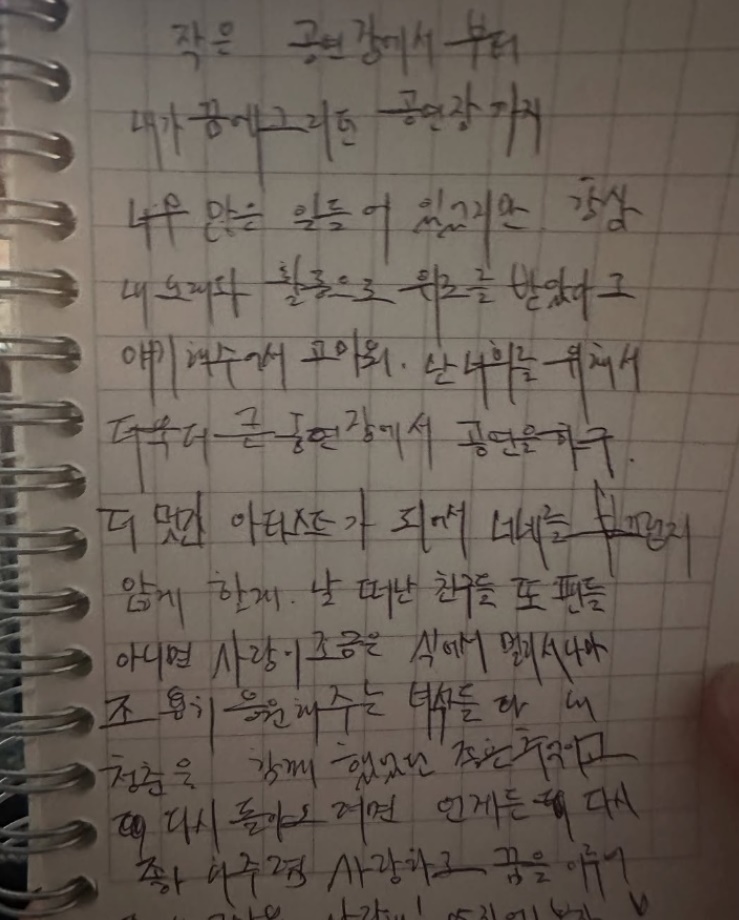 작은 공연장에서 부터
내가 꿈에 그리던 공연장 까지
너무 많은 일들이 있었지만 항상
내 노래와 활동으로 위로를 받았다고
얘기해주어서 고마워. 난 너희를 위해서
더욱더 큰 공연장에서 공연을 하구.
더 멋진 아티스트가 되어서 너네를 부끄럽지
않게 할게. 날 떠난 친구들 또 팬들
아니면 사랑이 조금은 식어서 멀리서나마
조용히 응원해주는 녀석들 다 내
청춘을 함께 했었던 좋은 추억이고
다시 돌아오려면 언제든 다시
좋아해주고 사랑하고 꿈을 이루어